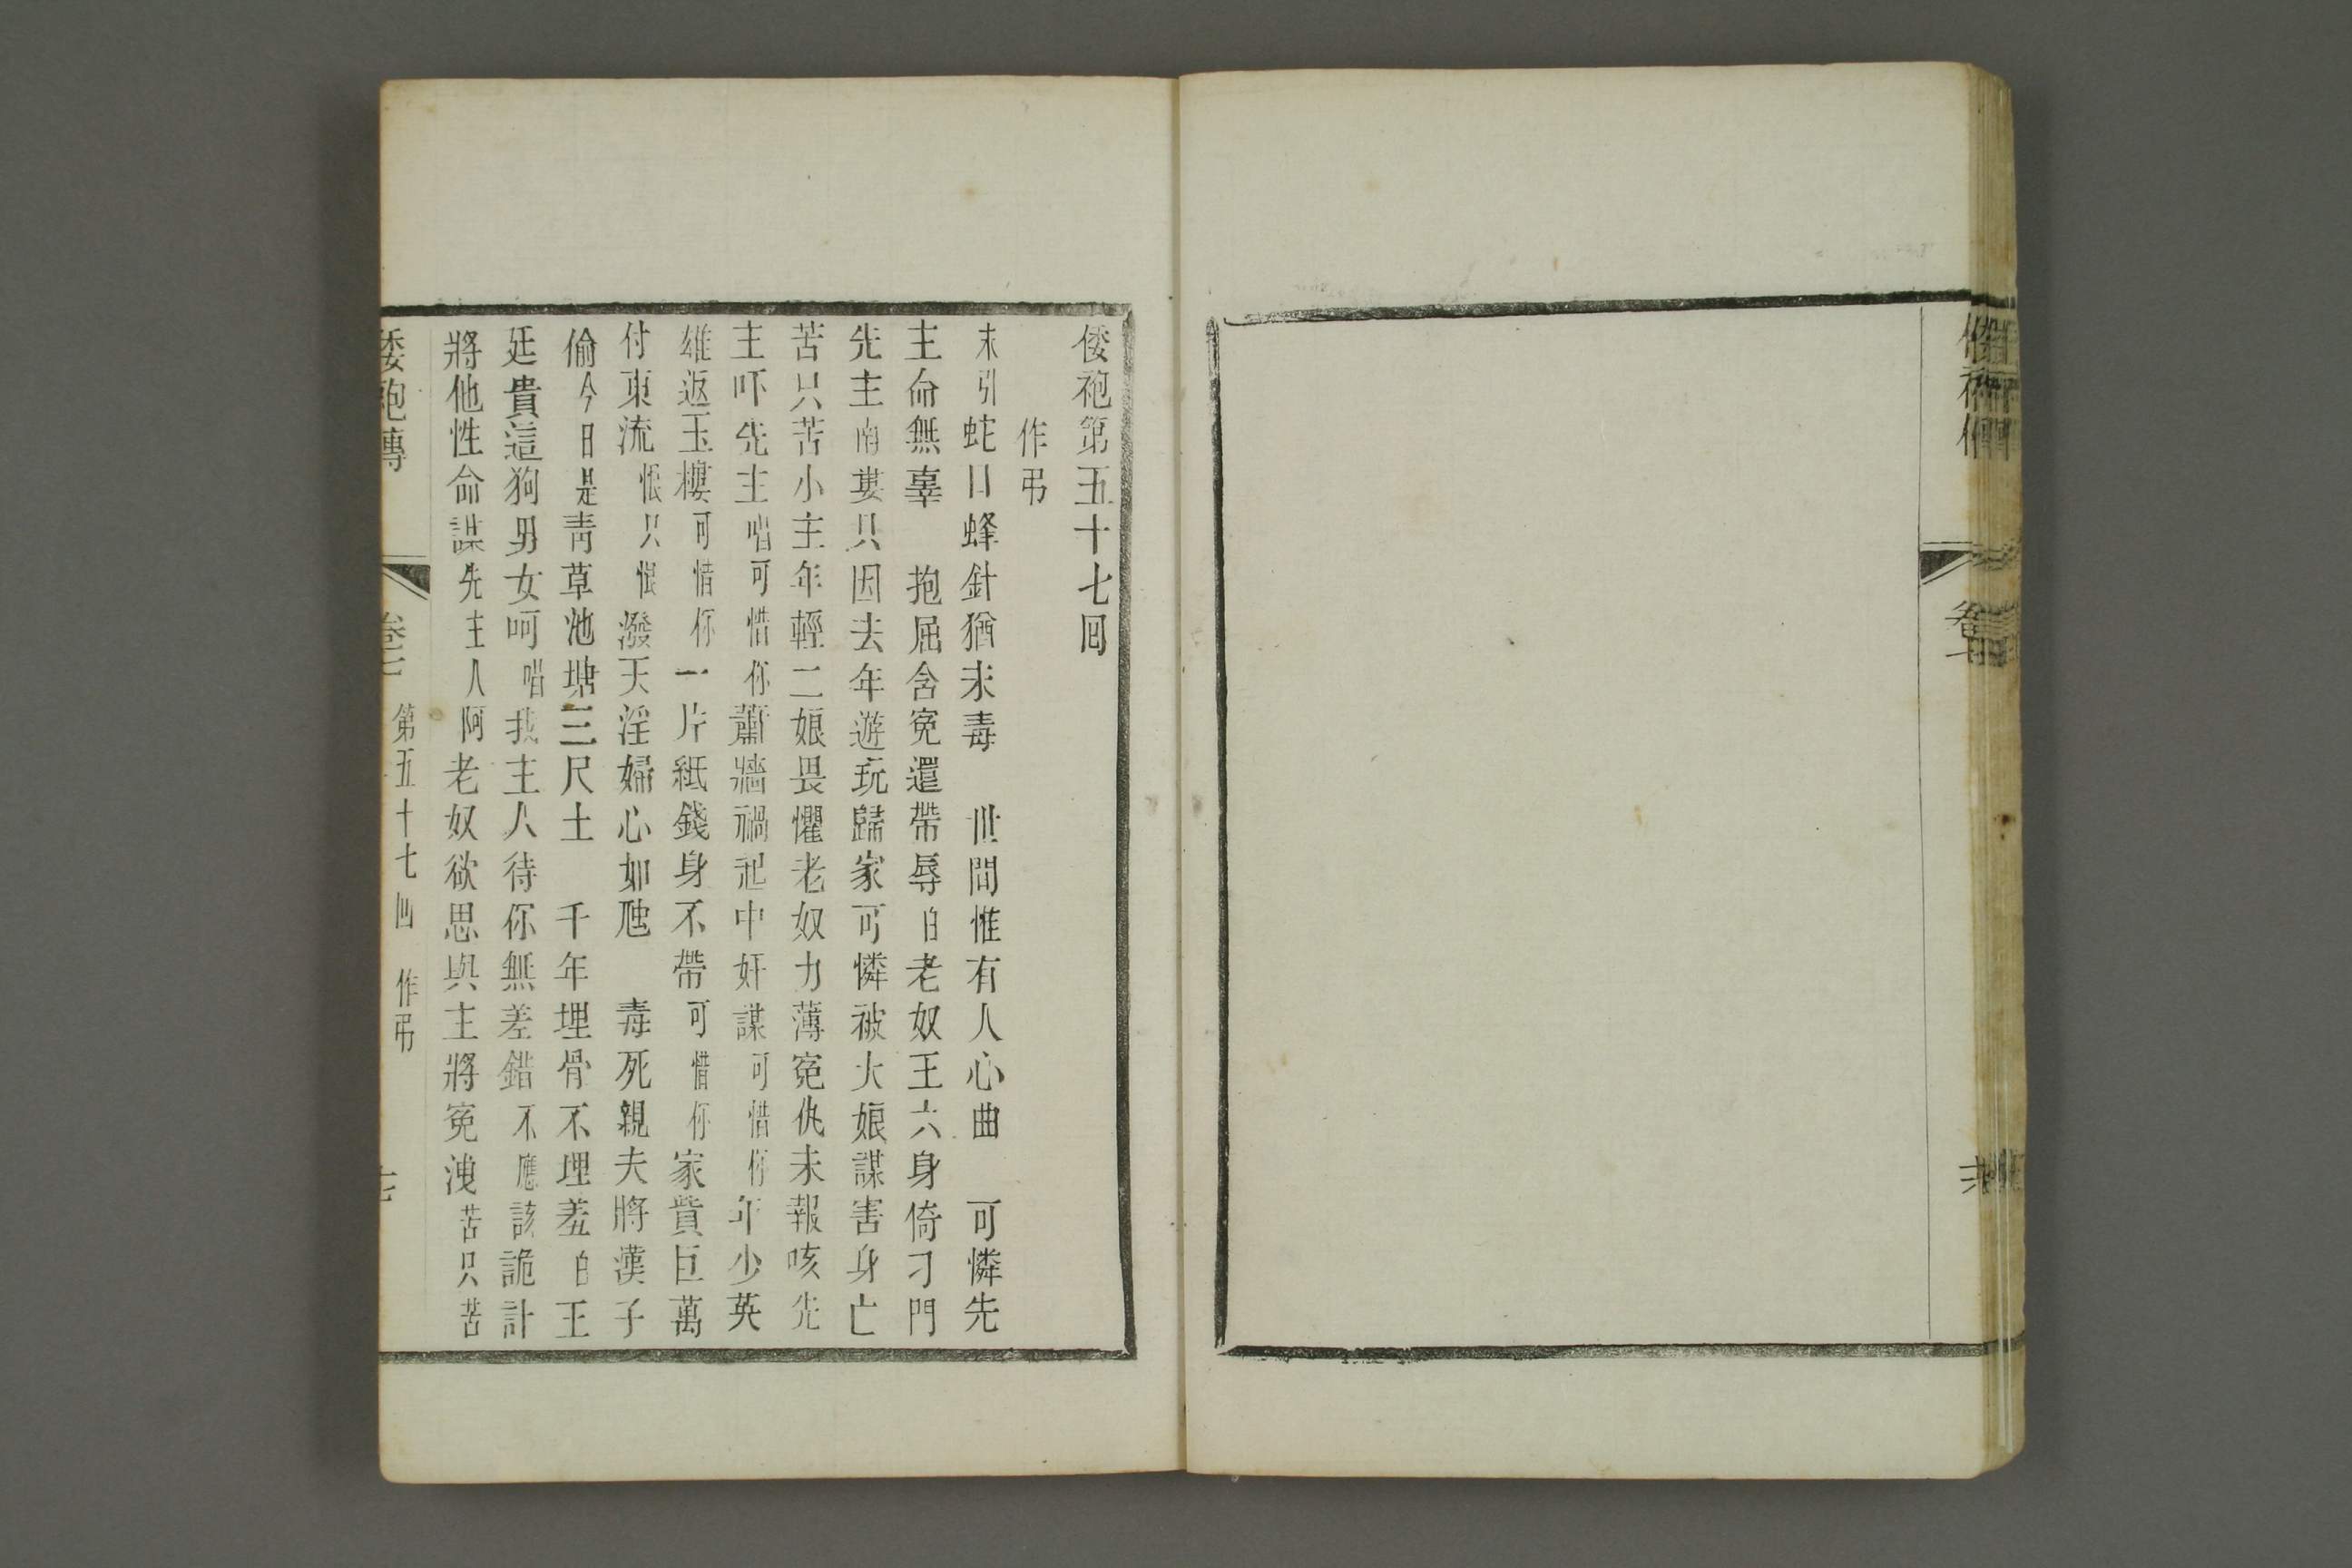 倭袍第五十七回
作弔
末引蛇口蜂針猶未毒　世間惟有人心曲　可憐先
主命無辜　抱屈含冤還帶辱白老奴王六身倚刁門
先主南婁只因去年遊玩歸家可憐被大娘謀害身亡
苦只苦小主年輕二娘畏懼老奴力薄冤仇未報咳先
主吓先主唱可惜你蕭牆禍起中奸謀可惜你年少英
雄返玉樓可惜你一片紙錢身不帶可惜你家貲巨萬
付東流恨只恨潑天淫婦心如虺　毒死親夫將漢子
偷今日是青草池塘三尺土　千年埋骨不埋羞白王
廷貴這狗男女呵唱我主人待你無差錯不應該詭計
將他性命謀先主人阿老奴欲思與主將冤洩苦只苦
倭袍傳　卷七　第五十七回　作弔